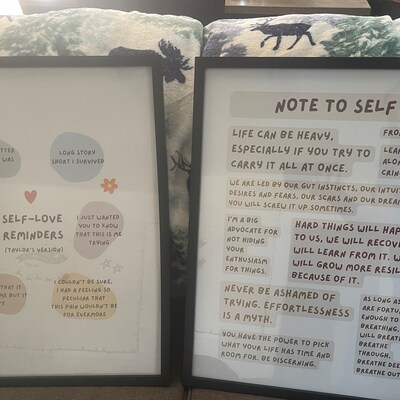 TTER
WAS
LONG STORY
SHORT I SURVIVED
SELF-LOVE
REMINDERS
(TAYLOR'S VERSION)
I JUST WANTED
YOU TO KNOW
THAT THIS IS ME
TRYING
THAT IT
ME BUT IT
I COULDN'T BE SURE,
I HAD A FEELING SO
PECULIAR THAT
THIS PAIN WOULDN'T BE
FOR EVERMORE
NOTE TO SELF
LIFE CAN BE HEAVY,
ESPECIALLY IF YOU TRY TO
CARRY IT ALL AT ONCE.
FRO
LEA
ALON
CRIN
WE ARE LED BY OUR GUT INSTINCTS, OUR INTUI
DESIRES AND FEARS, OUR SCARS AND OUR DREAM
YOU WILL SCREW IT UP SOMETIMES.
I'M A BIG
ADVOCATE FOR
NOT HIDING
YOUR
ENTHUSIASM
FOR THINGS.
HARD THINGS WILL HAPP
TO US. WE WILL RECOVE
WILL LEARN FROM IT. W
WILL GROW MORE RESIL
BECAUSE OF IT.
NEVER BE ASHAMED OF
TRYING. EFFORTLESSNESS
IS A MYTH.
YOU HAVE THE POWER TO PICK
WHAT YOUR LIFE HAS TIME AND
ROOM FOR. BE DISCERNING.
AS LONG AS
ARE FORTU
ENOUGH TO
BREATHING,
WILL BREAT
BREATHE
THROUGH,
BREATHE DEE
BREATHE OUT